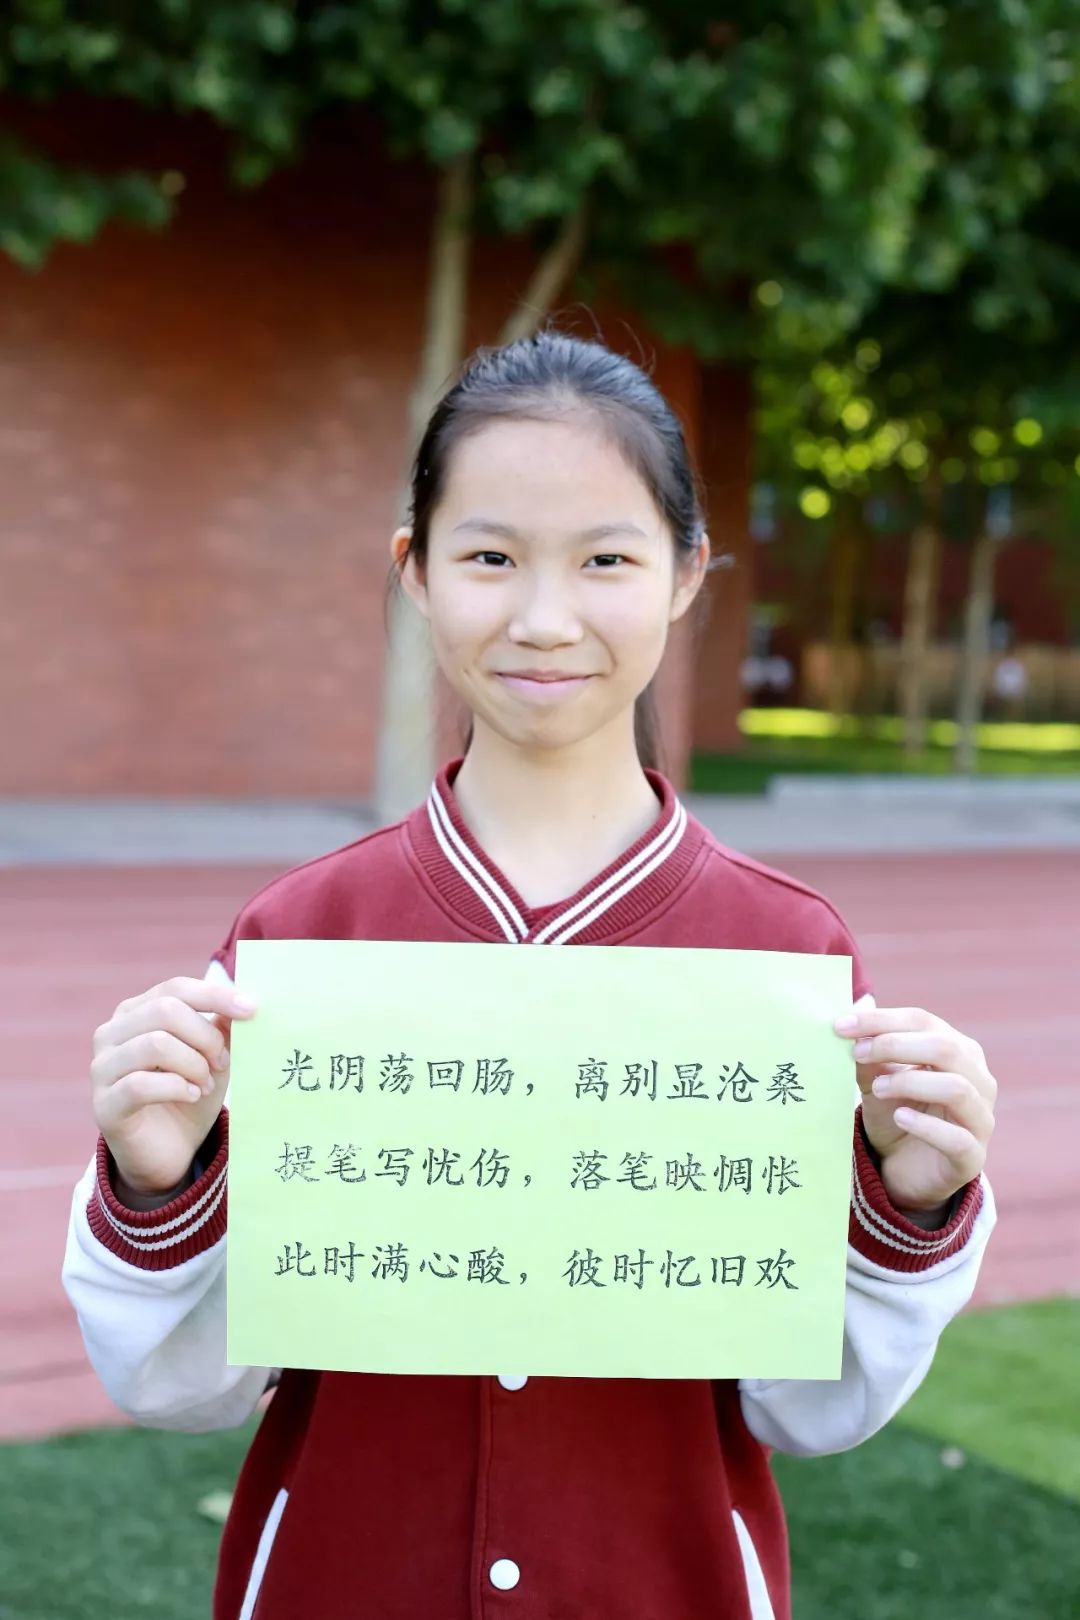 光阴荡回肠，离别显沧桑
提笔写忧伤，落笔映惆怅
此时满心酸，彼时忆旧欢